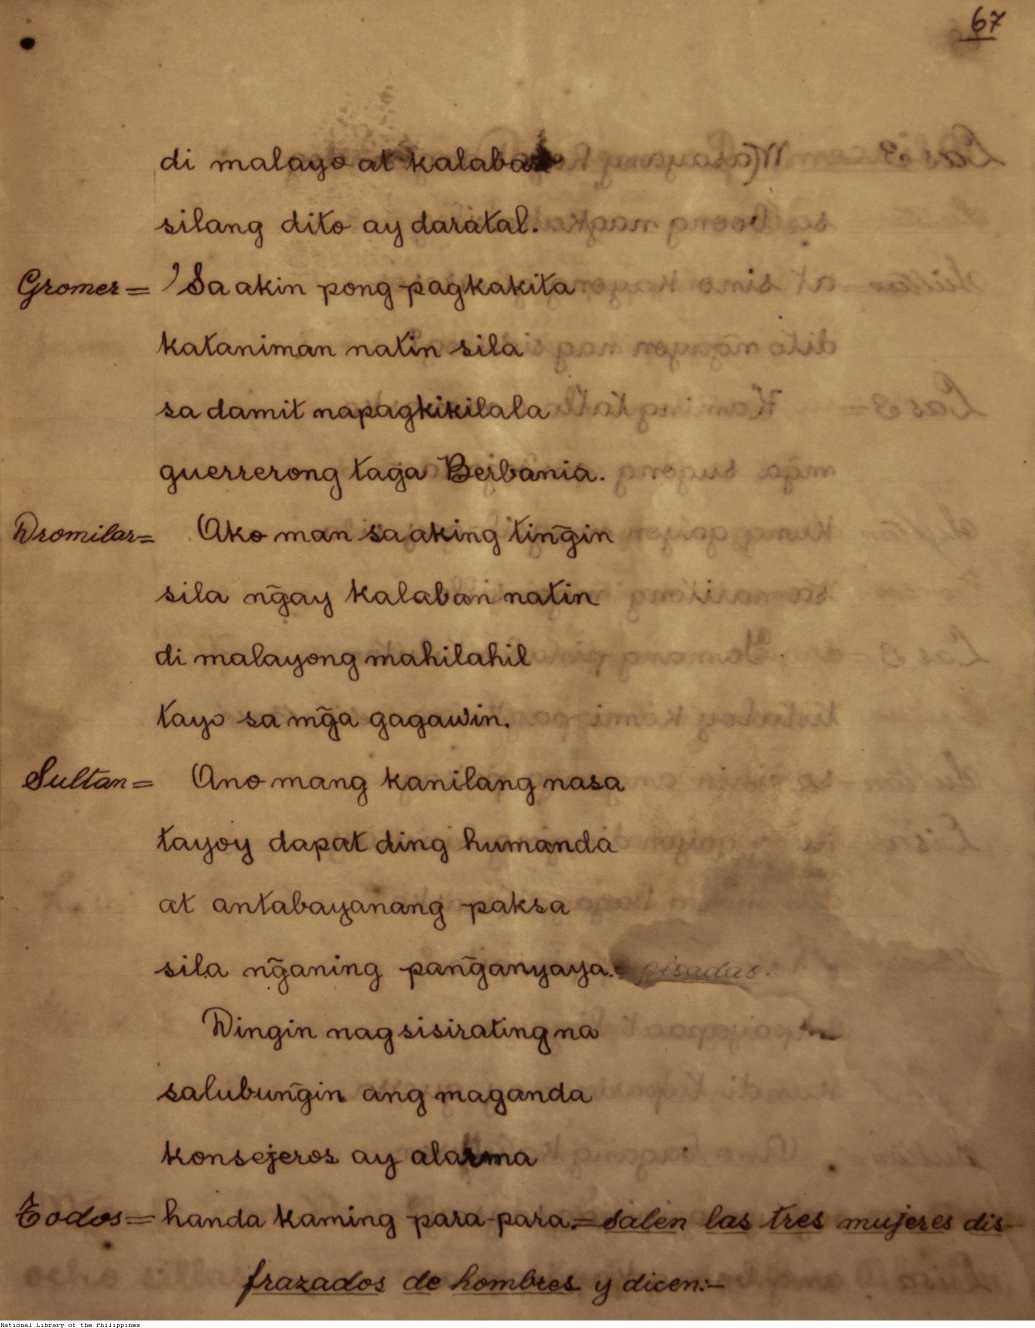 67
di malayo at kalaban
silang dito ay daratal.
Gromer = Sa akin pong pagkakita
kataniman natin sila
sa damit napagkikilala
guerrerong taga Berbania.
Dromilar = Ako man sa aking tiñgin
sila ng̃ay kalaban natin
di malayong mahilahil
tayo sa mg̃a gagawin.
Sultan = Ano mang kanilang nasa
tayoy dapat ding humanda
at antabayanang paksa
sila ng̃aning pang̃anyaya.
Dingin nagsisirating na
salubung̃in ang maganda
konsejeros ay alarma
Todos = handa kaming para-para. = Salen las tres mujeres dis-
frazados de hombres y dicen:-
National Library of the Philippines